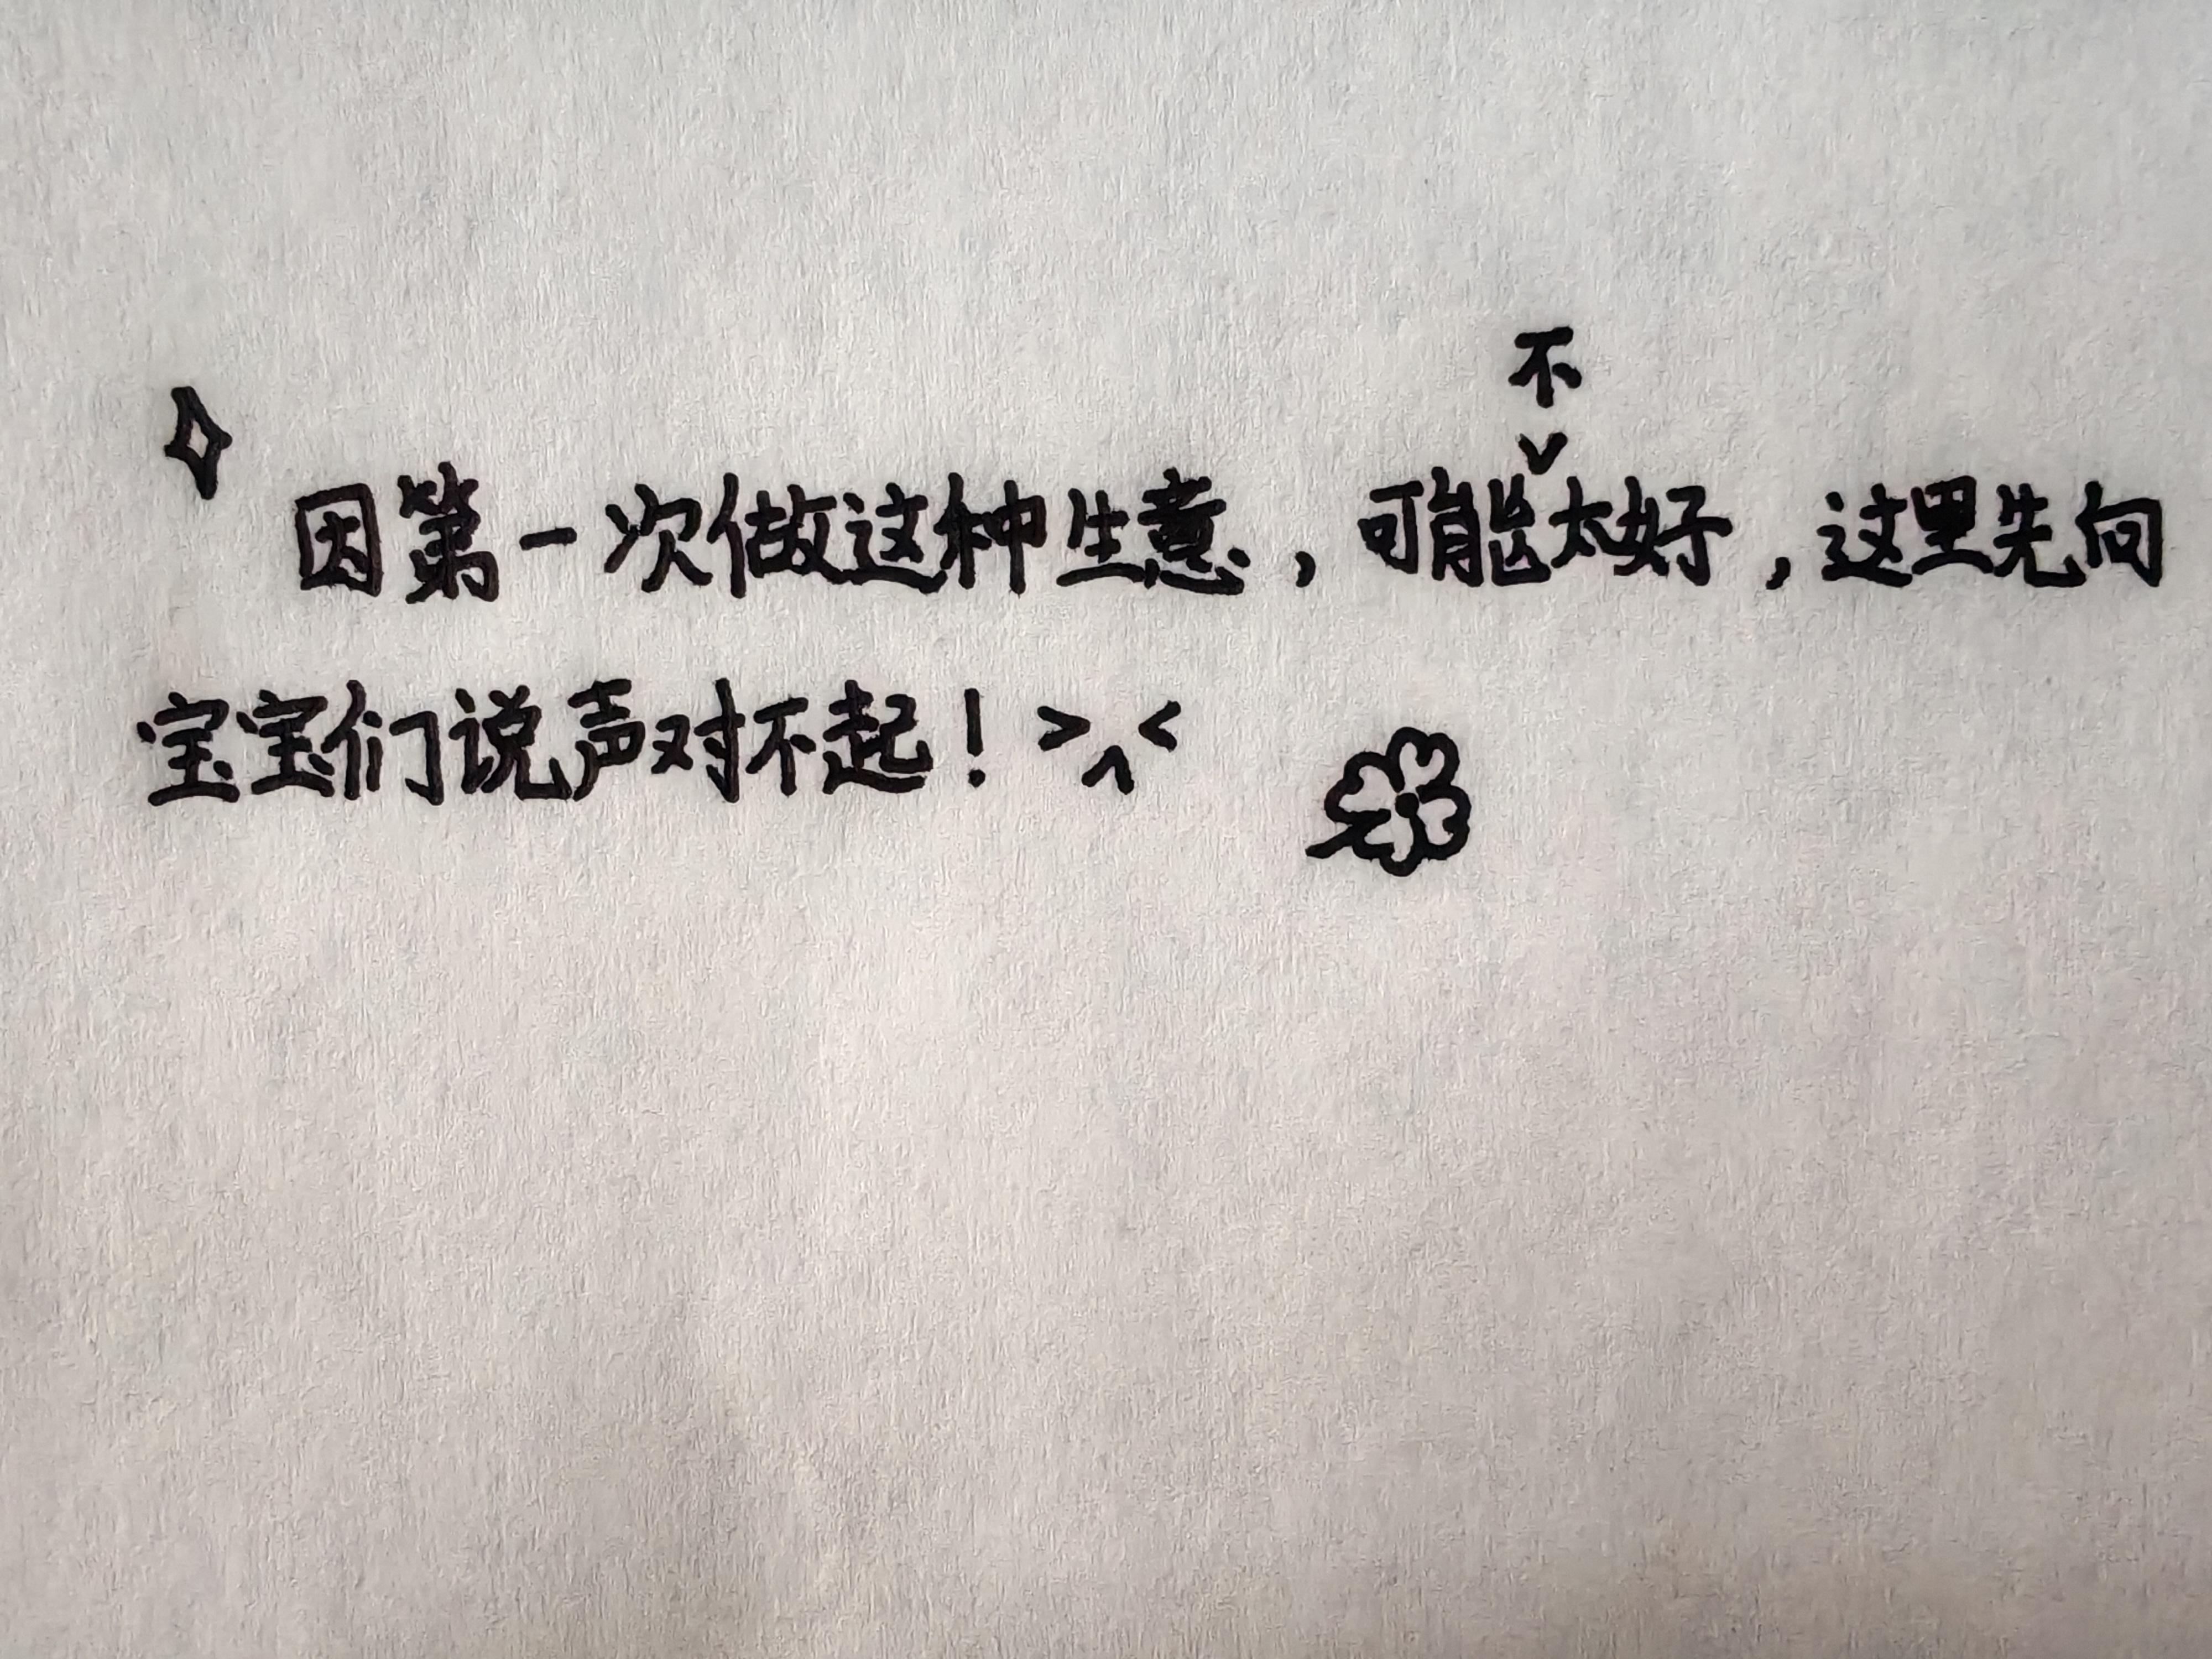 因第一次做这种生意，可能不太好，这里先向
宝宝们说声对不起！>^<